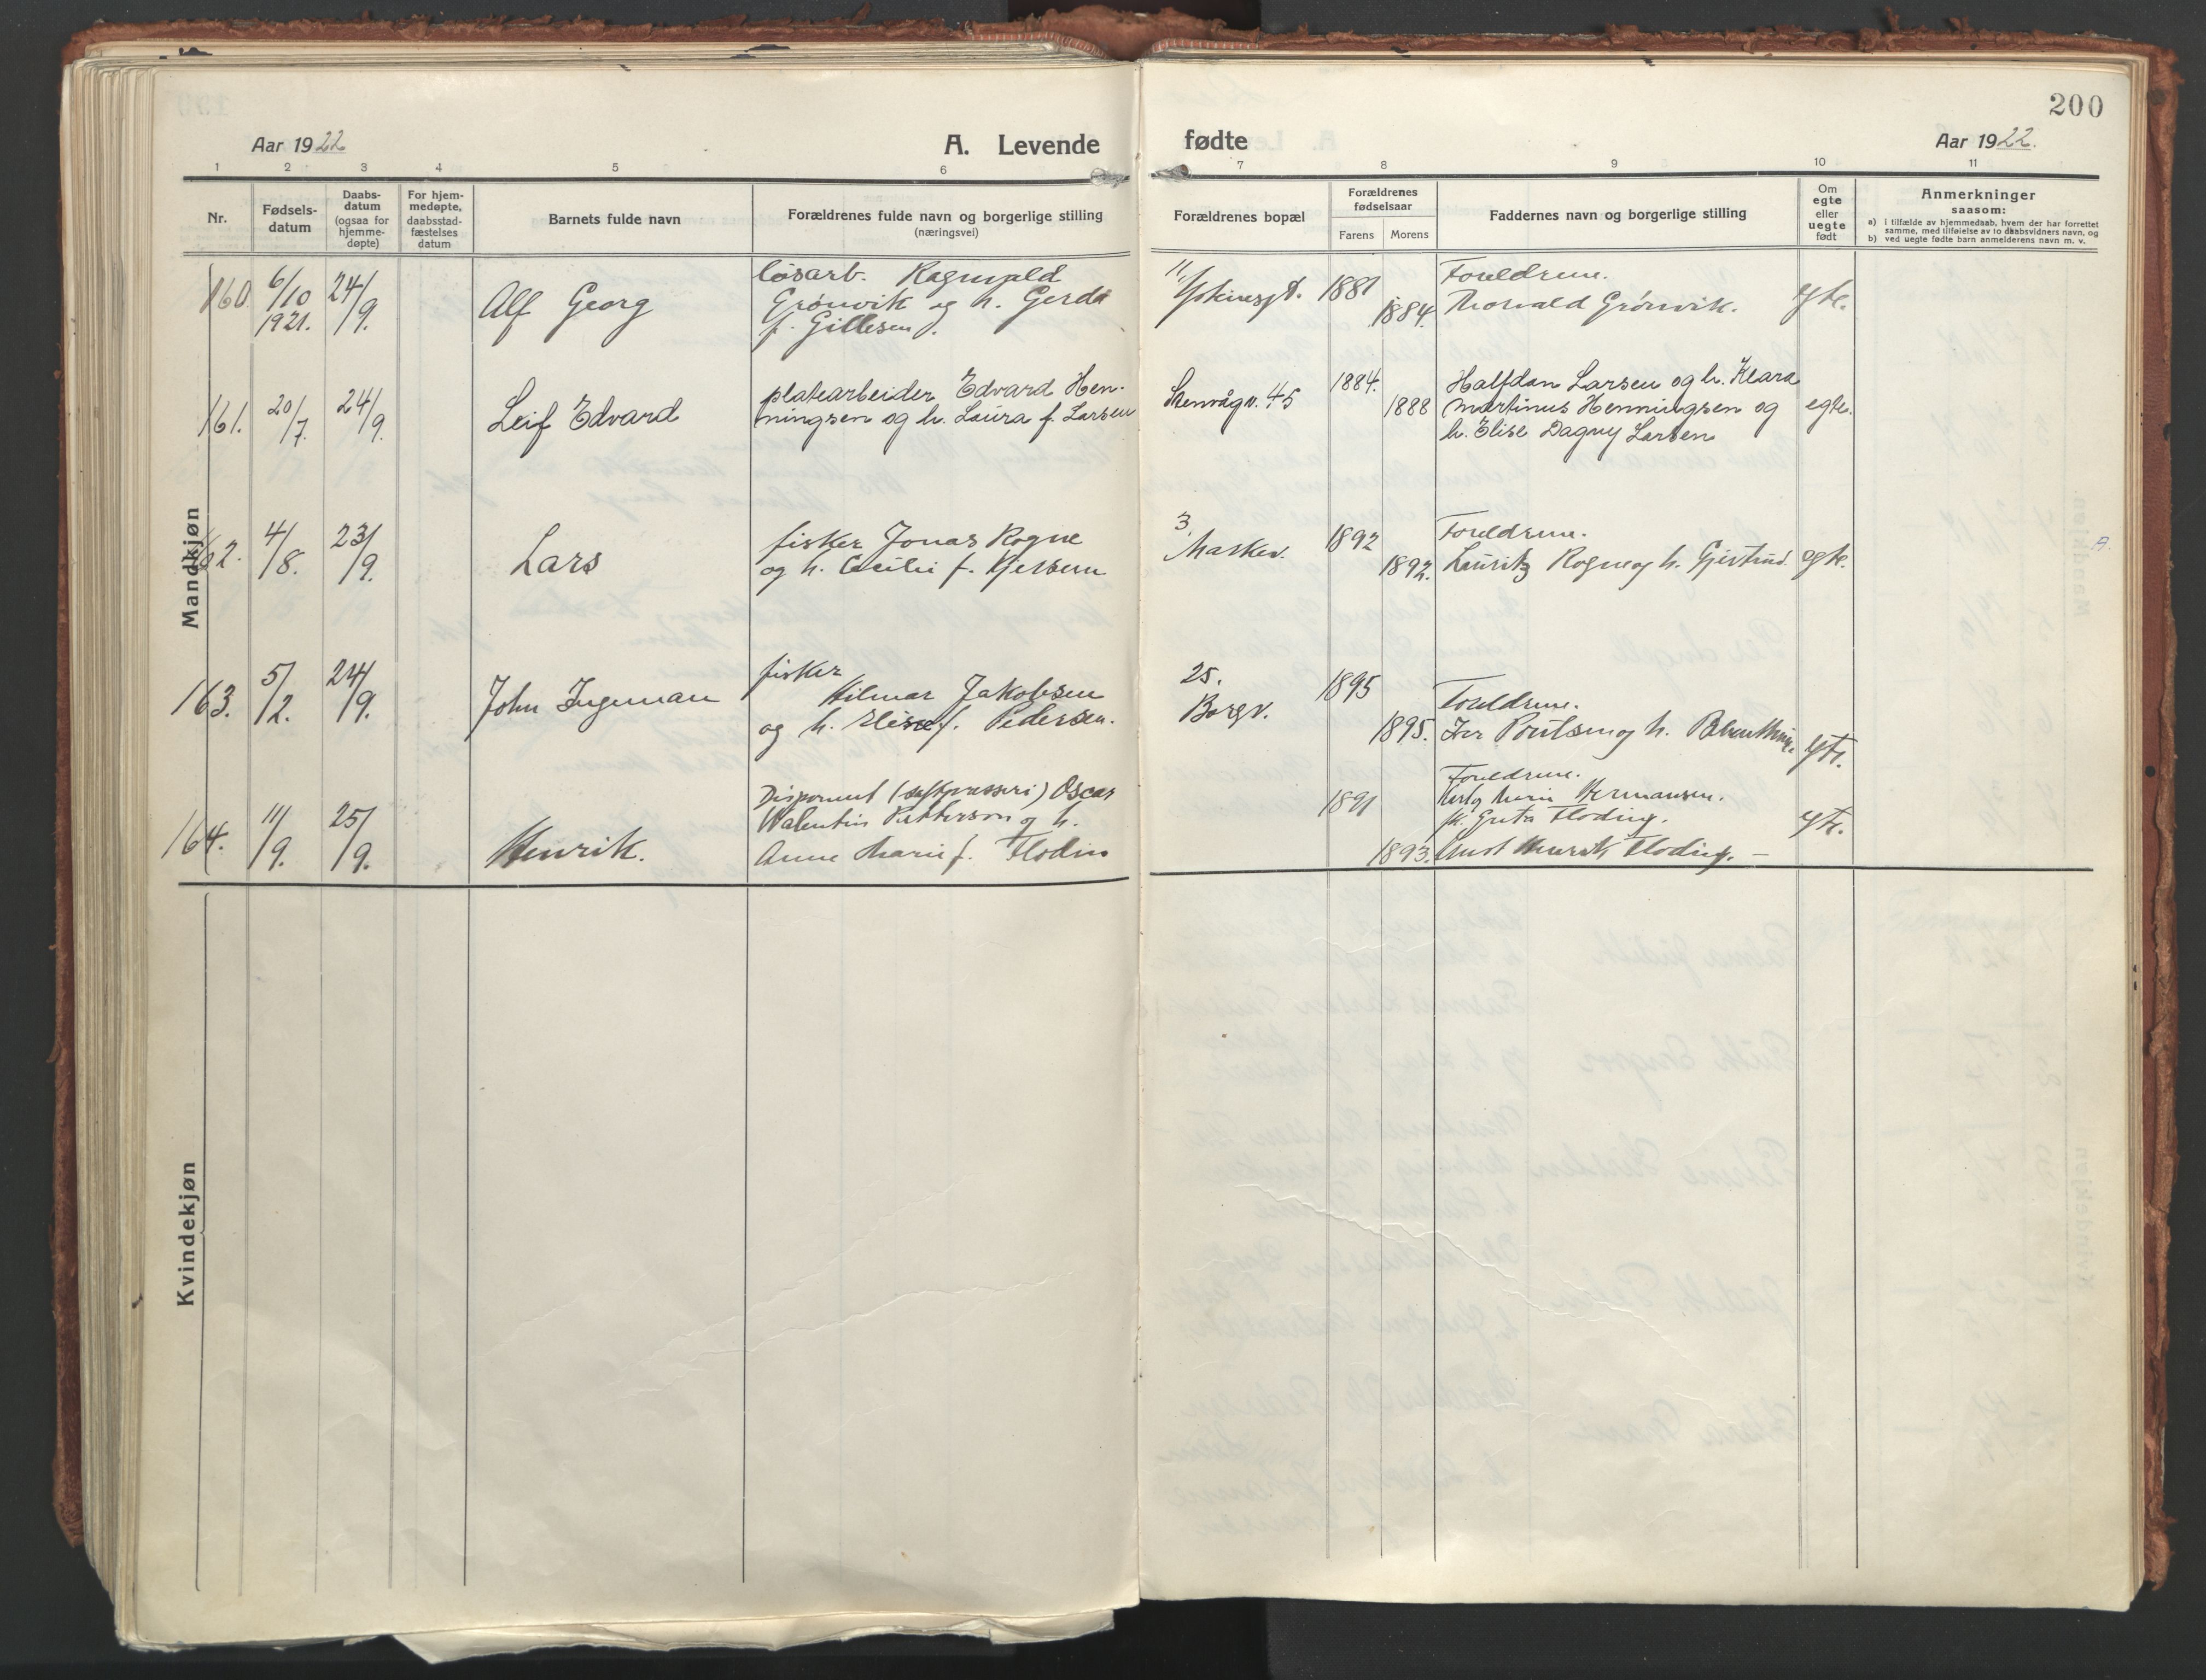 200
Aar 1922
A. Levende
fødte
Aar 1922.
1 2 3 4 5 6 7 8 9 10 11
Nr.
Fødsels-
datum
Daabs-
datum
(ogsaa for
hjemme-
døpte)
For hjem-
medøpte,
daabsstad-
fæstelses
datum
Barnets fulde navn
Forældrenes fulde navn og borgerlige stilling
(næringsvei)
Forældrenes bopæl
Forældrenes
fødselsaar
Farens Morens
Faddernes navn og borgerlige stilling
Om
egte
eller
uegte
født
Anmerkninger
saasom:
a) i tilfælde av hjemmedaab, hvem der har forrettet
samme, med tilføielse av to daabsvidners navn, og
b) ved uegte fødte barn anmelderens navn m. v.
Mandkjøn
160. 6/10 1921. 24/9. Alf Georg
løsarb. Ragnvald
Grönvik og h. Gerda
f. Gillesen.
11/ 1881 1884.
Foreldrene.
Thorvald Grönvik. egte.
161. 20/7. 24/9. Leif Edvard
platearbeider Edvard Hen-
ningsen og h. Laura f. Larsen
Stenvågv. 45 1884. 1888
Halfdan Larsen og h. Klara
Martinus Henningsen og egte.
h. Elise Dagny Larsen
162. 4/8. 23/9. Lars
fisker Jonas Rogne
og h. Cecilie f.
3 1892 1892.
Foreldrene.
Lauritz Rogne og h. Gjertrud. egte.
A.
163. 5/2. 24/9. John Ingeman
fisker
Hilmar Jakobsen
og h. Elise f. Pedersen.
25.
Borgv. 1895 1895.
Foreldrene.
Iver Poulsen og h. egte.
164. 11/9. 25/9. Henrik.
Disponent Oscar
Valentin Petterson og h.
Anne Marie f. Flodin
1891 1893.
Foreldrene.
Marie Hermansen.
fk. Greta Floding. egte.
Henrik Floding. —
Kvindekjøn